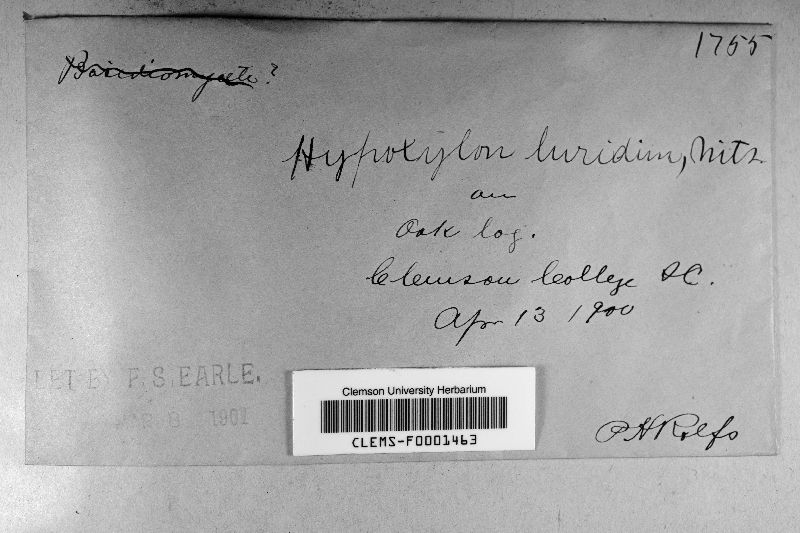 1755
Basidiomycete?
Hypoxylon luridum, Nitz.
on
Oak log.
Clemson College S.C.
Apr 13 1900
DET BY F. S. EARLE.
8 1901
Clemson University Herbarium
CLEMS-F0001463
P H Rolfs